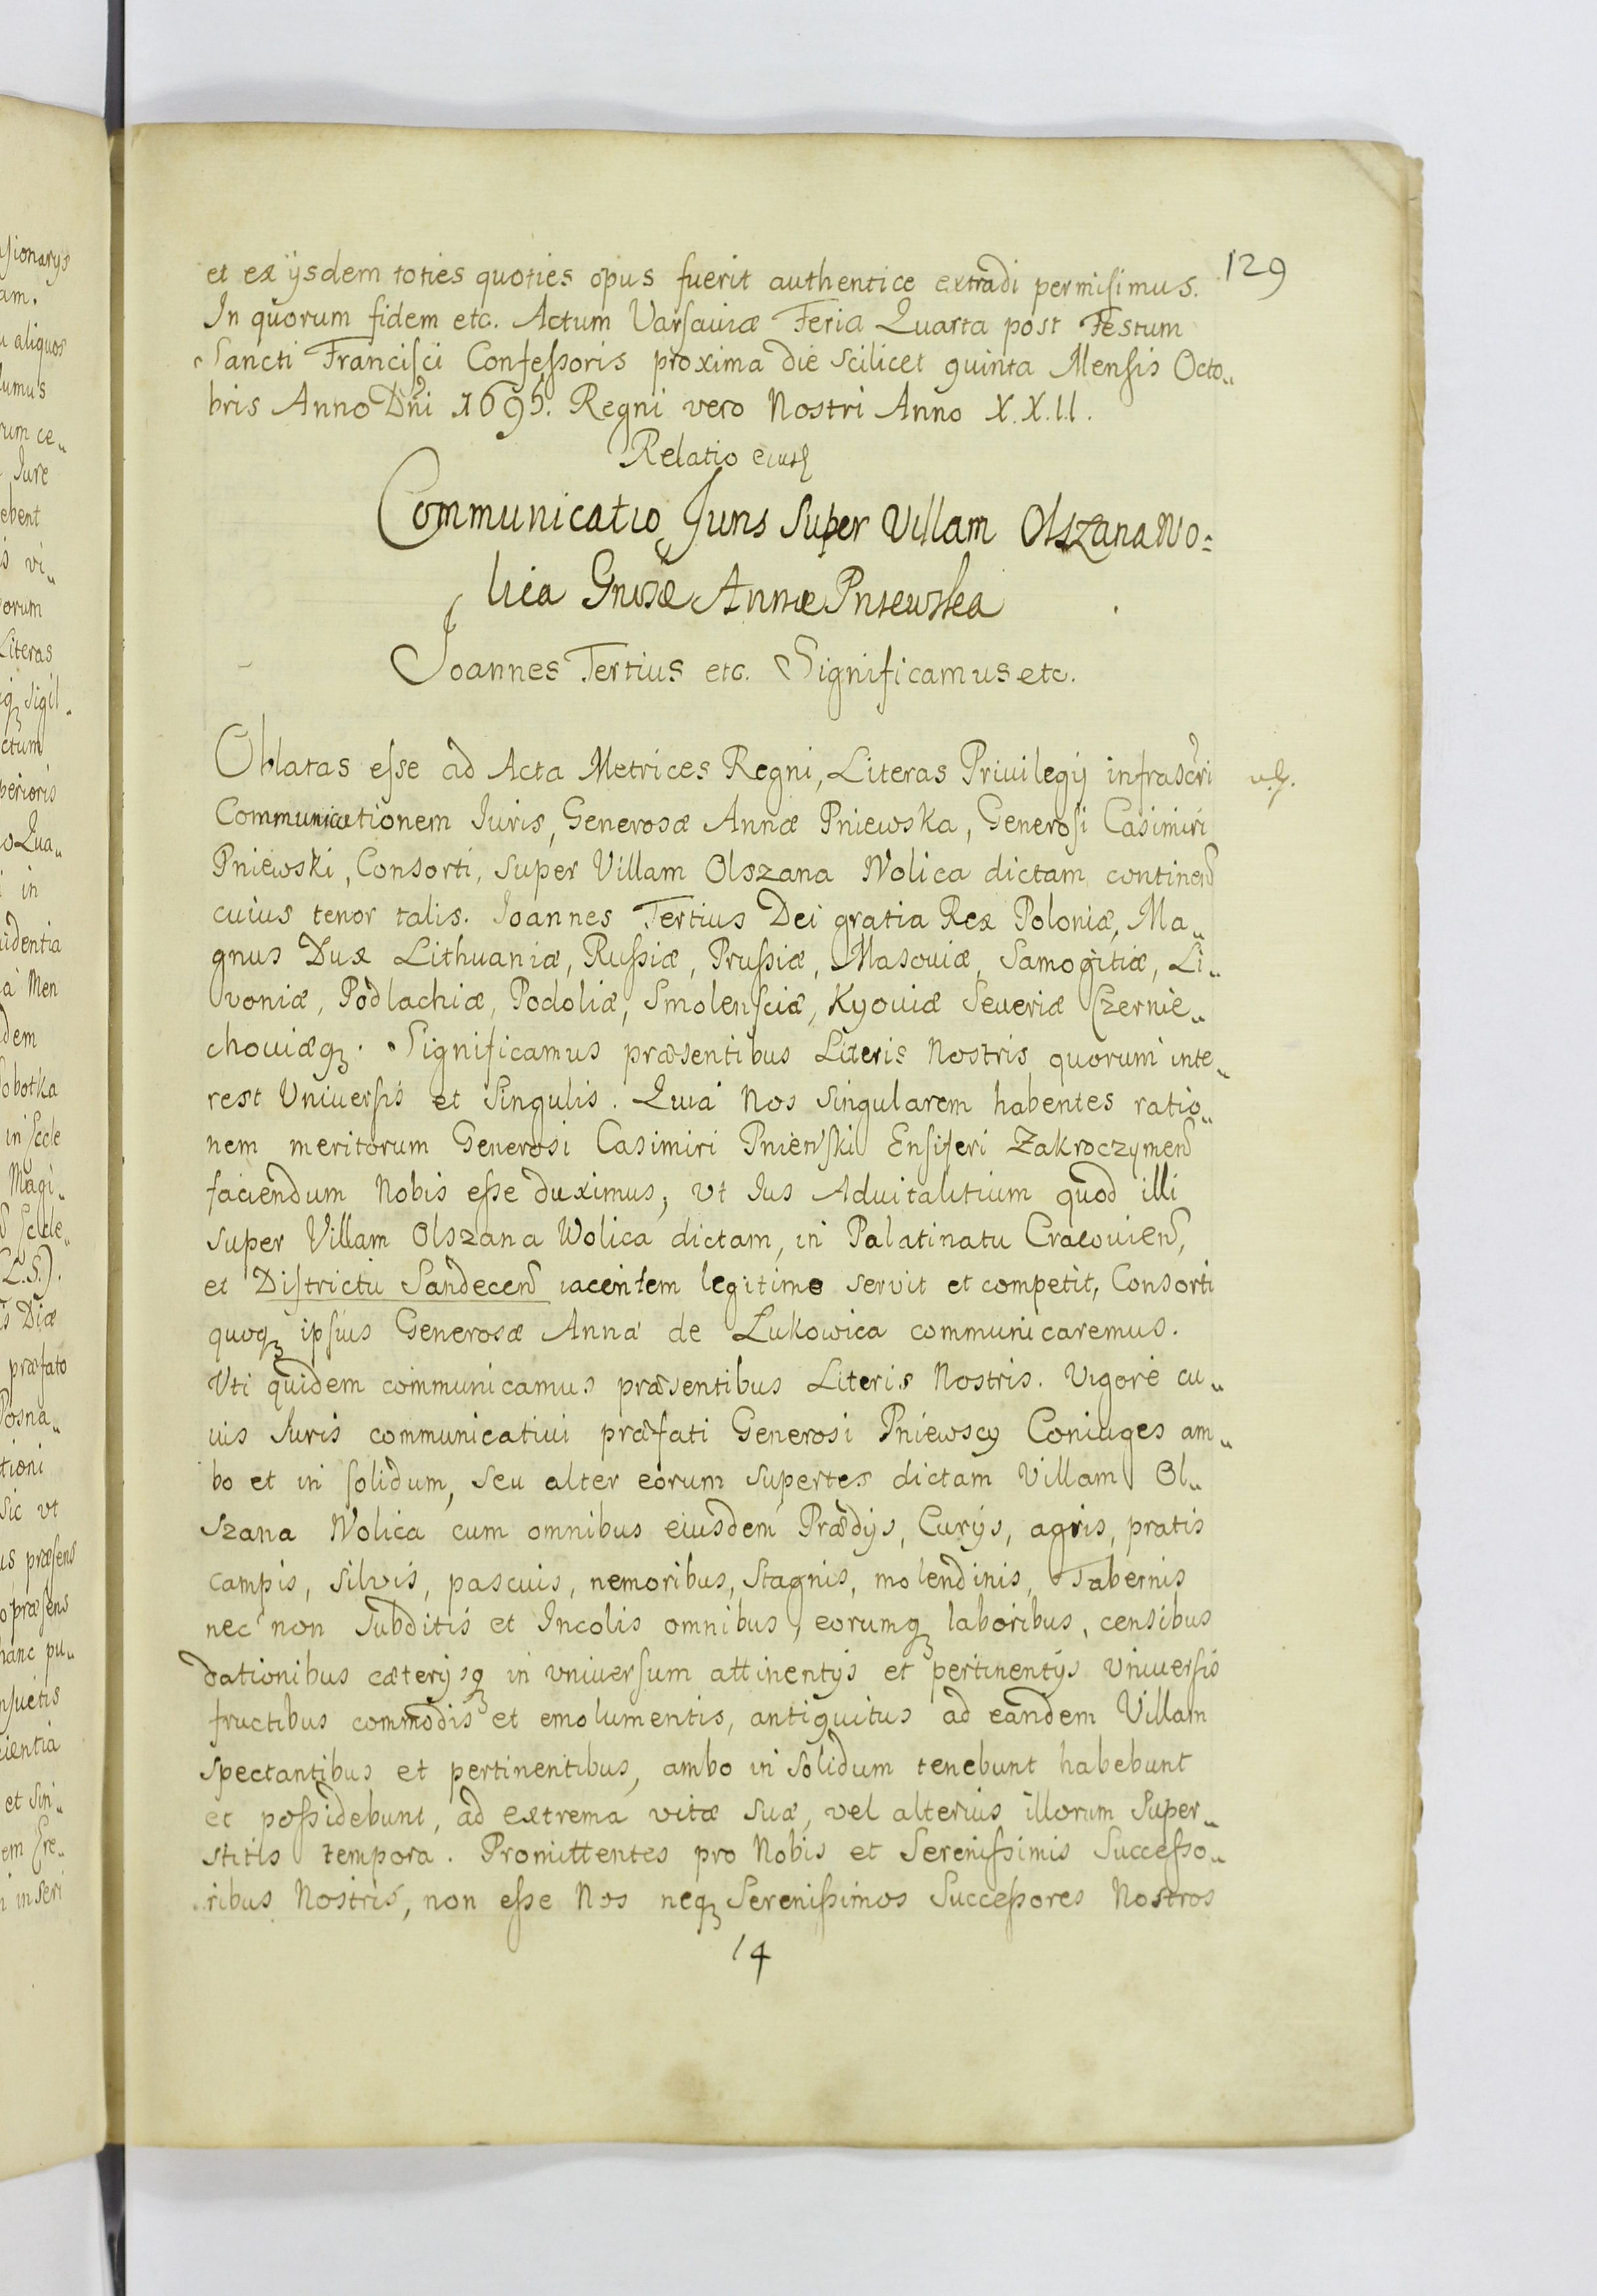 129
et ex ijsdem toties quoties opus fuerit authentice extradi permisimus.
In quorum fidem etc. Actum Varsaviæ Feria Quarta post Festum
Sancti Francisci Confessoris proxima die scilicet quinta Mensis Octo„
bris Anno Dni 1695. Regni vero Nostri Anno X.X.I.I.
Relatio eiusd
Communicatio Juris super Villam Olszana Wo=
lica Gnosæ Annæ Pniewska
Joannes Tertius etc. Significamus etc.
Oblatas esse ad Acta Metrices Regni, Literas Privilegij infrascri
Communicationem Iuris, Generosæ Annæ Pniewska, Generosi Casimiri
Pniewski, Consorti, super Villam Olszana Wolica dictam continen
cuius tenor talis. Joannes Tertius Dei gratia Rex Poloniæ, Ma„
gnus Dux Lithuaniæ, Russiæ, Prussiæ, Masoviæ, Samogitiæ, Li„
voniæ, Podlachiæ, Podoliæ, Smolensciæ, Kyoviæ Severiæ Czernie„
choviæq. Significamus præsentibus Literis Nostris quorum inte„
rest Universis et Singulis. Quia Nos singularem habentes ratio„
nem meritorum Generosi Casimiri Pniewski Ensiferi Zakroczymen
faciendum Nobis esse duximus, vt Ius Advitalitium quod illi
super Villam Olszana Wolica dictam, in Palatinatu Cracovien,
et Districtu Sandecen iacentem legitime servit et competit, Consorti
quoq ipsius Generosæ Anna de Łukowica communicaremus.
Vti quidem communicamus præsentibus Literis Nostris. Vigore cu„
ius Iuris communicativi præfati Generosi Pniewscy Coniuges am„
bo et in solidum, seu alter eorum supertes dictam Villam Ol„
szana Wolica cum omnibus eiusdem Prædijs, Curijs, agris, pratis
campis, silvis, pascuis, nemoribus, stagnis, molendinis, Tabernis
nec non subditis et Incolis omnibus, eorumq laboribus, censibus
dationibus cæterijsq in vniversum attinentijs et pertinentijs Vniversis
fructibus commodis et emolumentis, antiquitus ad eandem Villam
spectantibus et pertinentibus, ambo in solidum tenebunt habebunt
et possidebunt, ad extrema vitæ suæ, vel alterius illorum super„
stitis tempora. Promittentes pro Nobis et Serenissimis Successo„
ribus Nostris, non esse Nos neq Serenissimos Successores Nostros
14